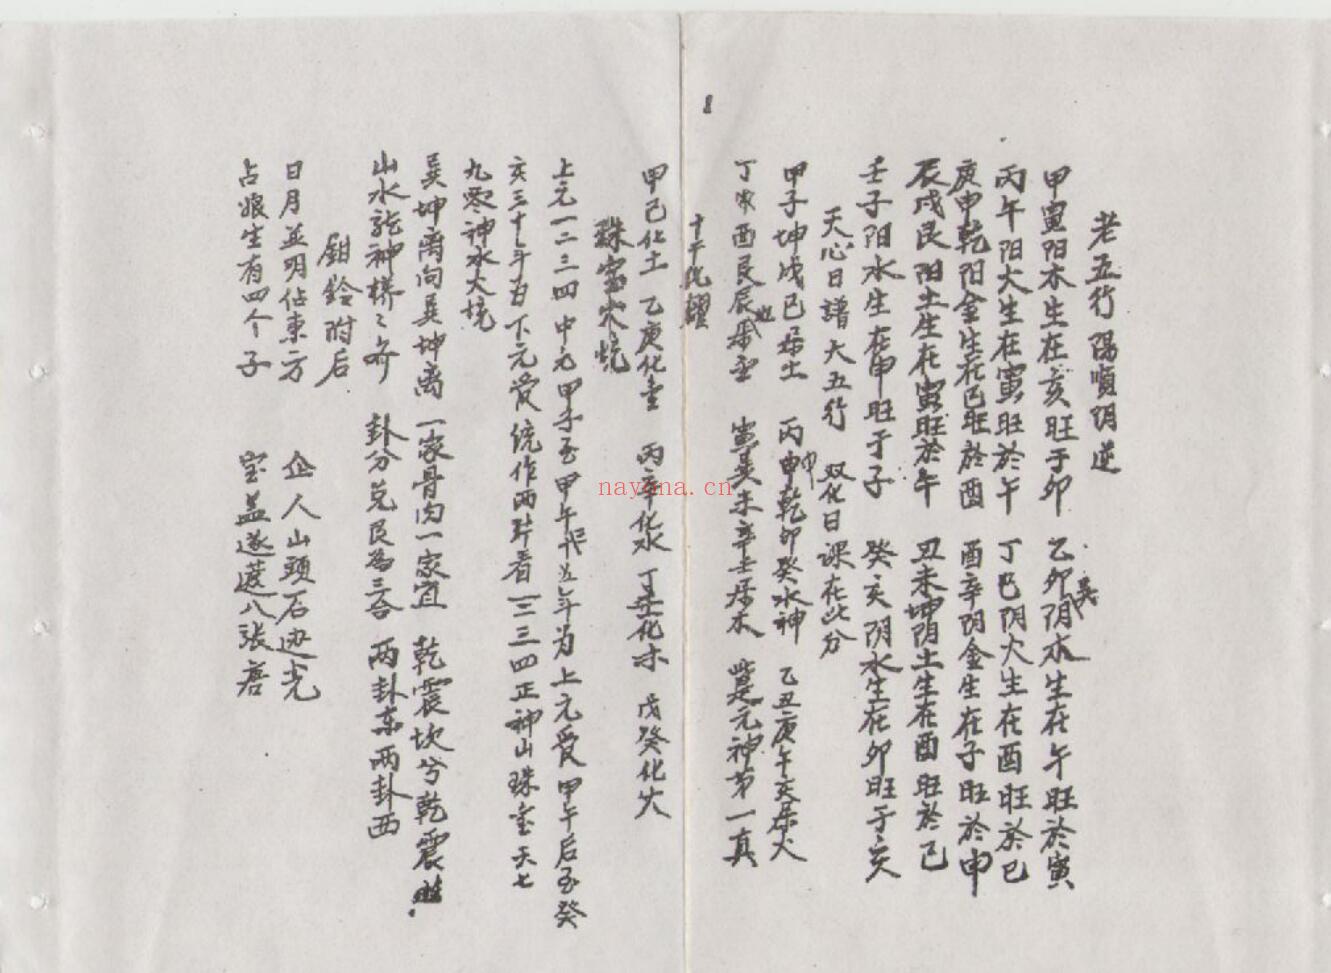 老五行 陽順阴逆
甲寅阳木生在亥旺于卯 乙卯巽阴木生在午旺於寅
丙午阳火生在寅旺於午 丁巳阴火生在酉旺於巳
庚申乾阳金生在巳旺於酉 酉辛阴金生在子旺於申
辰戌艮阳土生在寅旺於午 丑未坤阴土生在酉旺於巳
壬子阳水生在申旺于子 癸亥阴水生在卯旺于亥
天心日譜大五行 双化日课在此分
甲子坤戊己居土 丙申乾卯癸水神 乙丑庚午亥居火
丁 酉艮辰 寅巽未辛壬居木 是元神第一真
十干化耀
甲己化土 乙庚化金 丙辛化水 丁壬化木 戊癸化火
珠宝火坑
上元一二三四 中元甲子至甲午 年为上元受 甲午后至癸
亥三十年为下元受统作两片看 一二三四正神山珠宝 天七
九零神水火坑
巽坤离向巽坤离 一家骨肉一家宜 乾震坎兮乾震
山水龍神樣々奇 卦分兑艮為三合 两卦东两卦西
鉗鈴附后
日月並明佔東方 企人山頭石边光
占娘生有四个子 宝盖遂 八張
nayona.cn